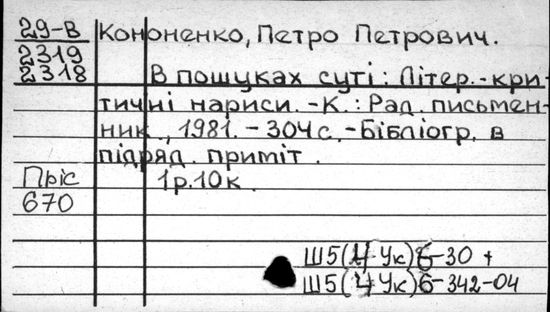 29-В Кононенко, Петро Петрович.
2319
2318 В пошуках суті: Літер.-кри-
тичні нариси. -К.: Рад. письмен-
ник, 1981. - 304 с. -Бібліогр. в
підряд. приміт.
Пріс 1р.10к.
670
Ш5(4Ук)6-30 +
Ш5(4Ук)6-342-04